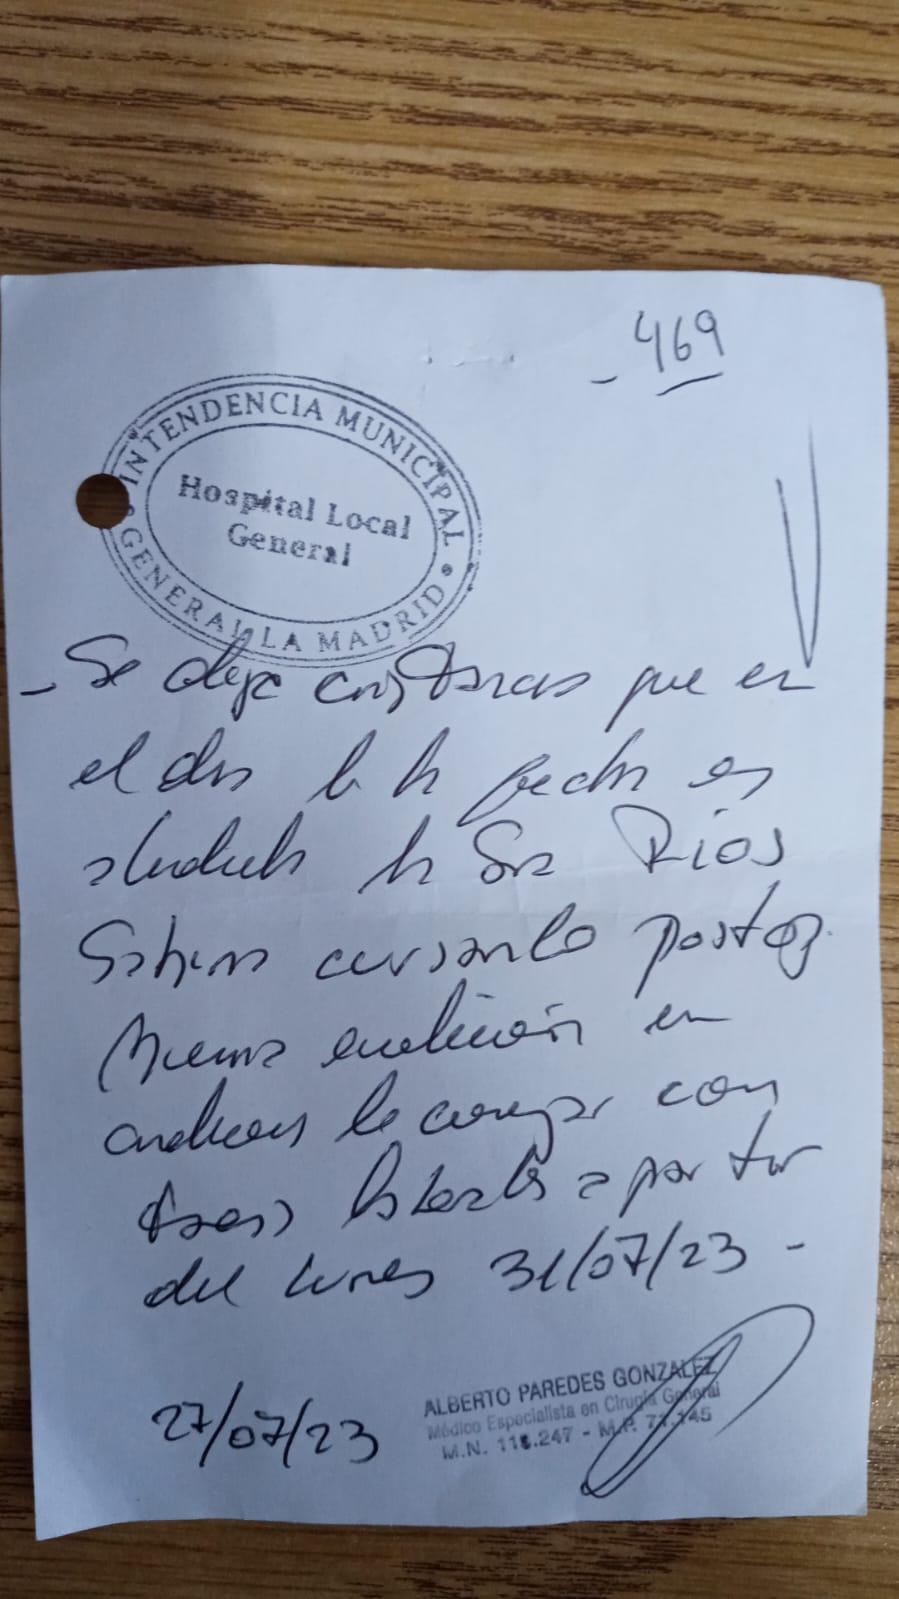 469
INTENDENCIA MUNICIPAL
Hospital Local
General
GENERAL LA MADRID
- Se deja constancia que en
el día de la fecha es
atendida la Sra Rios
cursando postop.
buena evolución en
condiciones de comenzar con
tareas laborales a partir
del lunes 31/07/23 -
27/07/23
ALBERTO PAREDES GONZALEZ
Médico Especialista en Cirugía General
M.N. 118.247 - M.P. 71.145